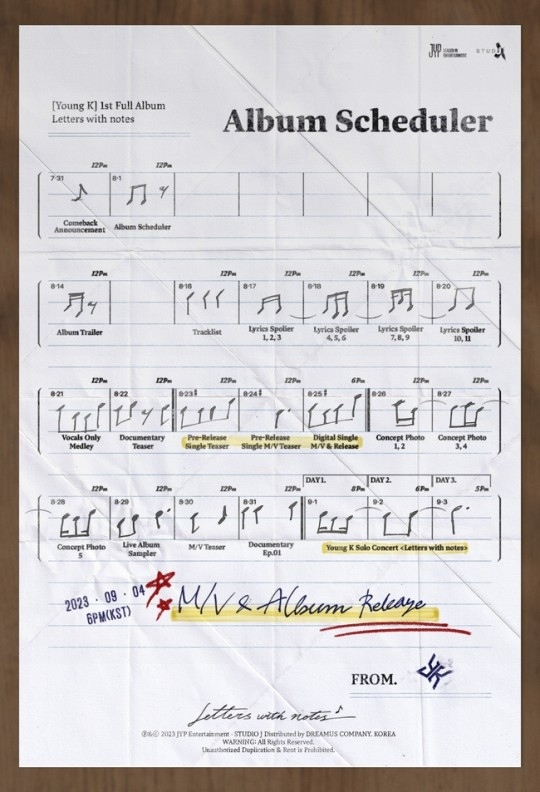 JYP LEADER IN ENTERTAINMENT STUDIO J
[Young K] 1st Full Album
Letters with notes
Album Scheduler
12PM 12PM
7·31 8·1
Comeback Announcement Album Scheduler
12PM 12PM 12PM 12PM 12PM 12PM
8·14 8·16 8·17 8·18 8·19 8·20
Album Trailer Tracklist Lyrics Spoiler Lyrics Spoiler Lyrics Spoiler Lyrics Spoiler
1, 2, 3 4, 5, 6 7, 8, 9 10, 11
12PM 12PM 12PM 12PM 6PM 12PM 12PM
8·21 8·22 8·23 8·24 8·25 8·26 8·27
Vocals Only Documentary Pre-Release Pre-Release Digital Single Concept Photo Concept Photo
Medley Teaser Single Teaser Single M/V Teaser M/V & Release 1, 2 3, 4
DAY1. DAY2. DAY3.
12PM 12PM 12PM 12PM 8PM 6PM 5PM
8·28 8·29 8·30 8·31 9·1 9·2 9·3
Concept Photo Live Album M/V Teaser Documentary Young K Solo Concert <Letters with notes>
5 Sampler Ep.01
2023 · 09 · 04
6PM(KST)
M/V & Album Release
FROM. YK
Letters with notes
℗&© 2023 JYP Entertainment · STUDIO J Distributed by DREAMUS COMPANY. KOREA
WARNING: All Rights Reserved.
Unauthorized Duplication & Rent is Prohibited.